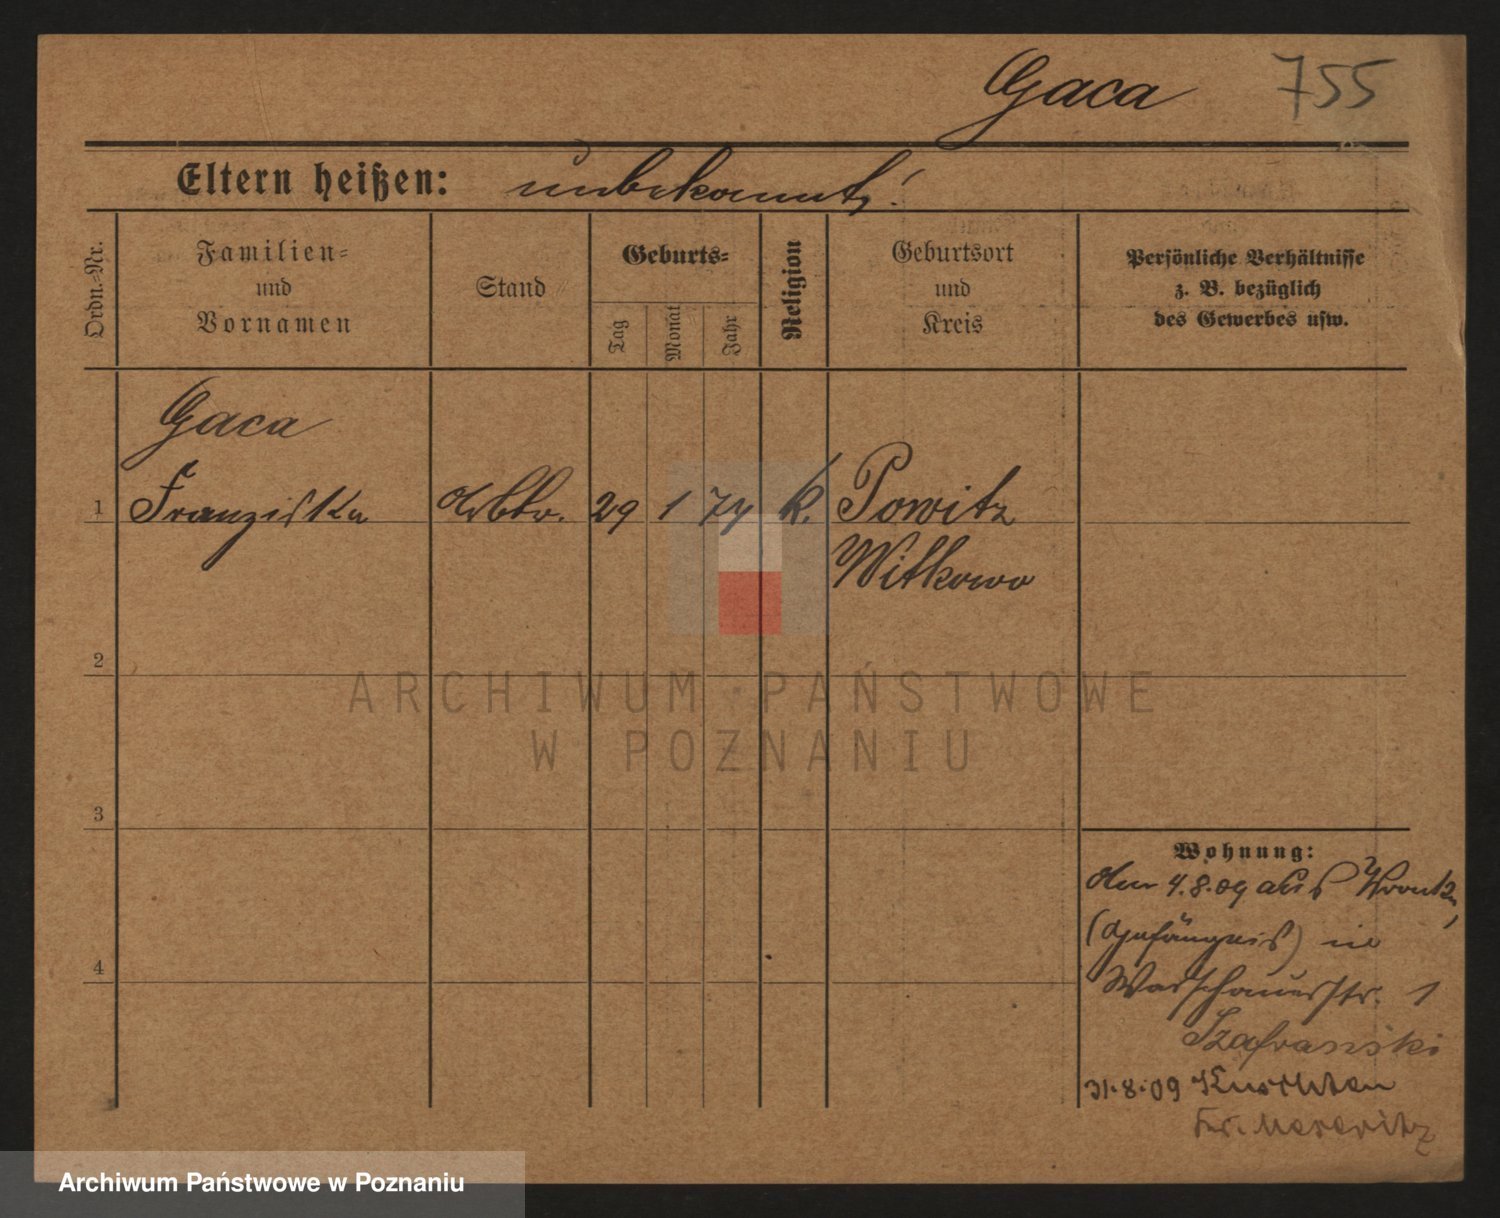 Gaca 755
Eltern heißen: unbekannt!
Ordn.-Nr.
Familien=
und
Vornamen
Stand
Geburts=
Tag
Monat
Jahr
Religion
Geburtsort
und
Kreis
Persönliche Verhältnisse
z. B. bezüglich
des Gewerbes usw.
Gaca
1 Franziska Arbtr. 29 1 74 k. Powitz
Witkowo
2
ARCHIWUM PAŃSTWOWE
W POZNANIU
3
Wohnung:
Am 4.8.09 aus Wronke,
(Gefängnis) in
4
Warschauerstr. 1
Szafranski
31.8.09
Kr. Meseritz
Archiwum Państwowe w Poznaniu